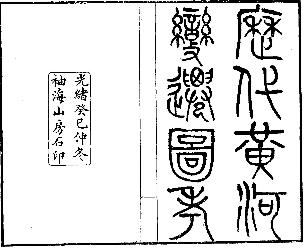 歷代黃河
變遷圖考
光緒癸巳仲冬
袖海山房石印